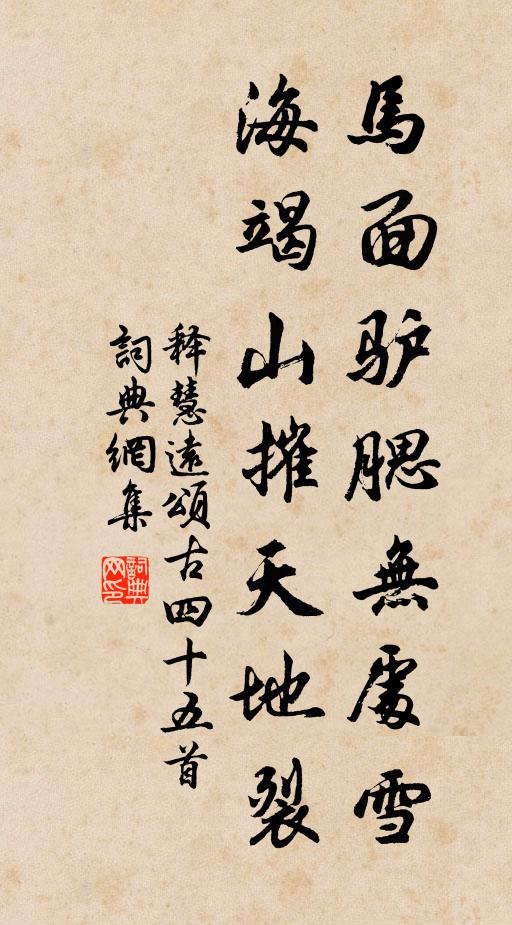 馬面驴腮無處雪
海竭山摧天地裂
释慧遠頌古四十五首
詞典網集
詞典网印